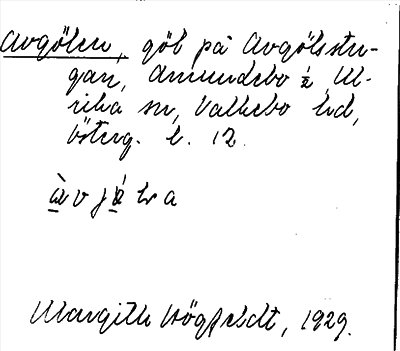 Avgölen, göl på Avgölsstu-
gan, Amundebo ½, Ul-
rika sn, Valkebo hd,
Österg. l. 12.
àvjə́lva
Margith Högfeldt, 1929.